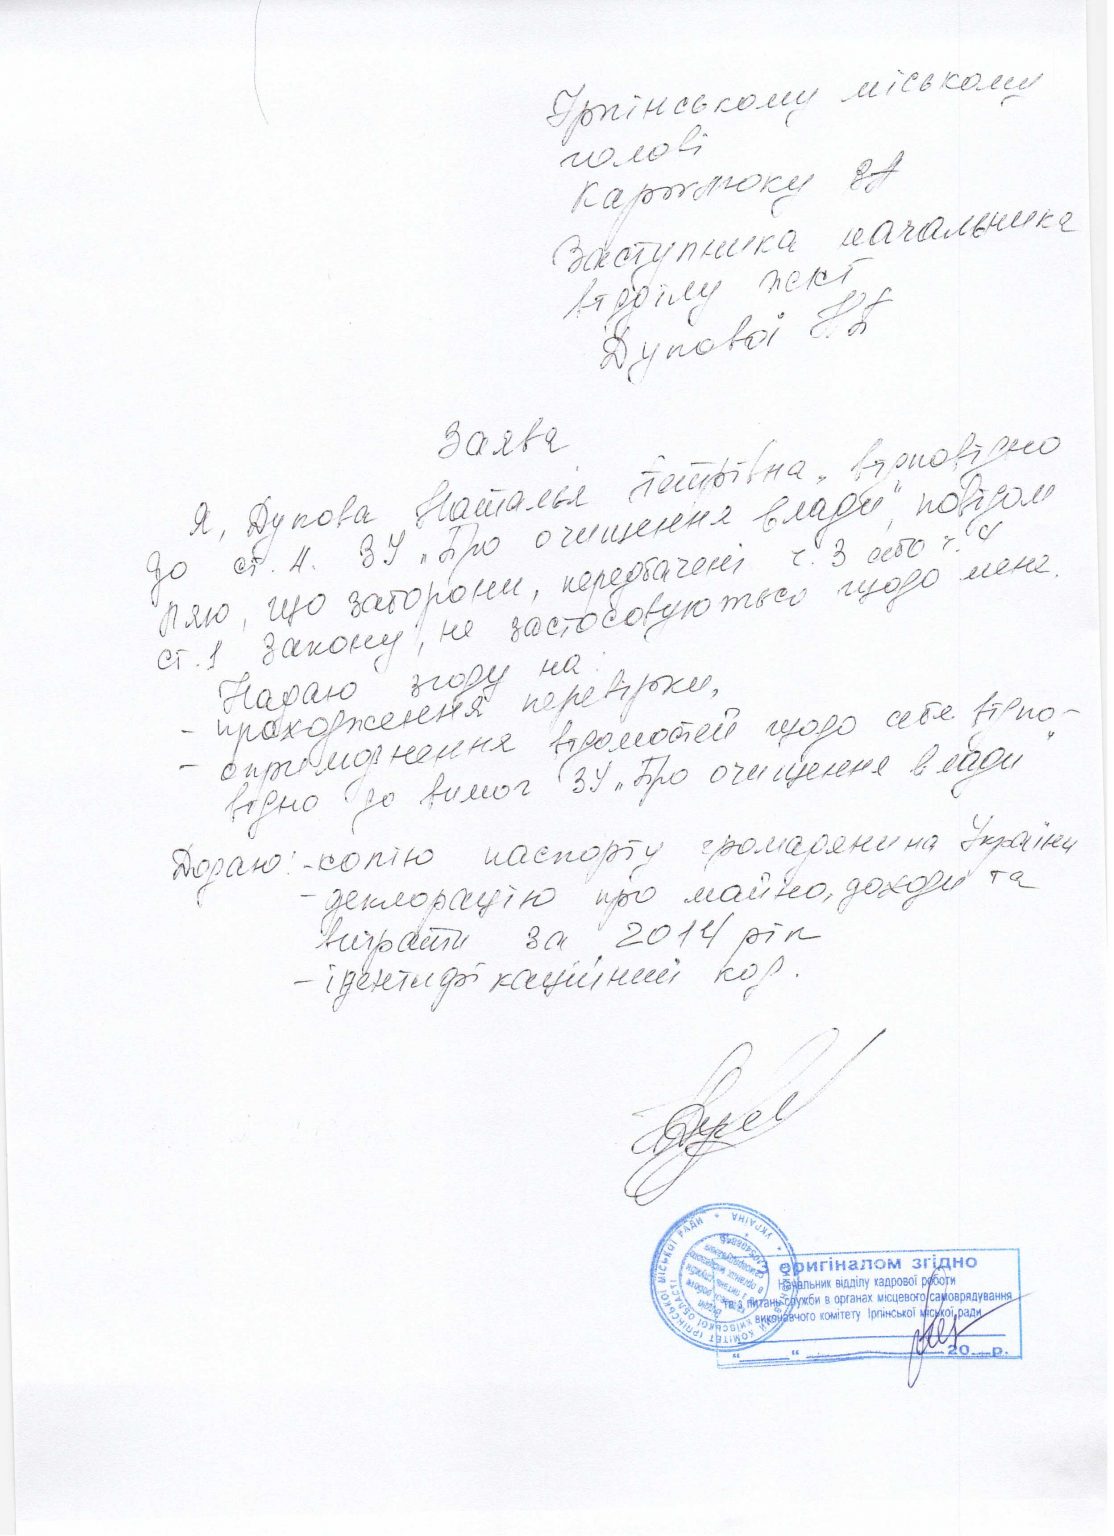 Ірпінському міському
голові
Карплюку ВА
Заступника начальника
відділу ЖКГ
Дупової Н.П
Заява
Я, Дупова Наталья Петрівна, відповідно
до ст. 4. ЗУ „Про очищення влади", повідом
ляю, що заборони, передбачені ч. 3 або ч. 4
ст. 1 Закону, не застосовуються щодо мене.
Надаю згоду на:
- проходження перевірки,
- оприлюднення відомостей щодо себе відпо-
відно до вимог ЗУ „Про очищення влади"
Додаю: - копію паспорту громадянина України
- декларацію про майно, доходи та
витрати за 2014 рік
- ідентифікаційний код.
З оригіналом згідно
Начальник відділу кадрової роботи
та з питань служби в органах місцевого самоврядування
виконавчого комітету Ірпінської міської ради
"____" ____________ 20__р.
УКРАЇНА * ВИКОНАВЧИЙ КОМІТЕТ ІРПІНСЬКОЇ МІСЬКОЇ РАДИ *
КИЇВСЬКОЇ ОБЛАСТІ